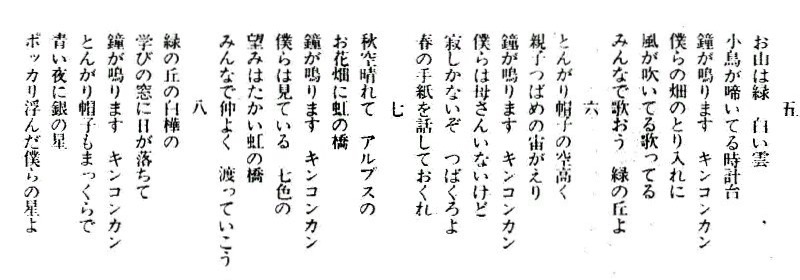 五
お山は緑　白い雲
小鳥が啼いてる時計台
鐘が鳴ります　キンコンカン
僕らの畑のとり入れに
風が吹いてる歌ってる
みんなで歌おう　緑の丘よ
六
とんがり帽子の空高く
親子つばめの宙がえり
鐘が鳴ります　キンコンカン
僕らは母さんいないけど
寂しかないぞ　つばくろよ
春の手紙を話しておくれ
七
秋空晴れて　アルプスの
お花畑に虹の橋
鐘が鳴ります　キンコンカン
僕らは見ている　七色の
望みはたかい虹の橋
みんなで仲よく　渡っていこう
八
緑の丘の白樺の
学びの窓に日が落ちて
鐘が鳴ります　キンコンカン
とんがり帽子もまっくらで
青い夜に銀の星
ポッカリ浮んだ僕らの星よ